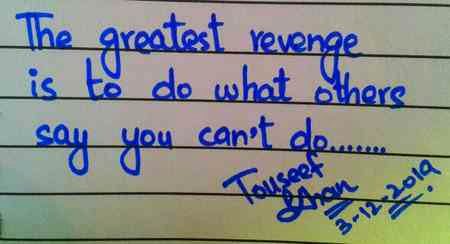 The greatest revenge
is to do what others
say you can't do.......
Touseef
Khan
3-12-2019.